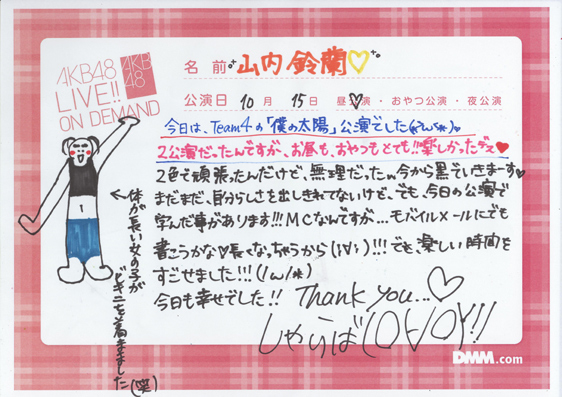 AKB48
LIVE!!
ON DEMAND
AKB
48
名前 山内鈴蘭♡
公演日 10月 15日 昼公演・おやつ公演・夜公演
今日は、Team4の「僕の太陽」公演でした(*>ω<*)。
2公演だったんですが、お昼も、おやつもとても!!楽しかったデス♥
2色で頑張ったんだけど、無理だった。。今から黒でいきまーす♡
まだまだ、自分らしさを出しきれてないけど、でも、今日の公演で
学んだ事があります!!!MCなんですが...モバイルメールにでも
書こうかな♡長くなっちゃうから(;∀;)!!!でも、楽しい時間を
すごせました!!!(/ω/*)
今日も幸せでした!! Thank you...♡
しゃらば(O∀O)!!
←体が長い女の子が
ビキニを着ました(笑)
DMM.com